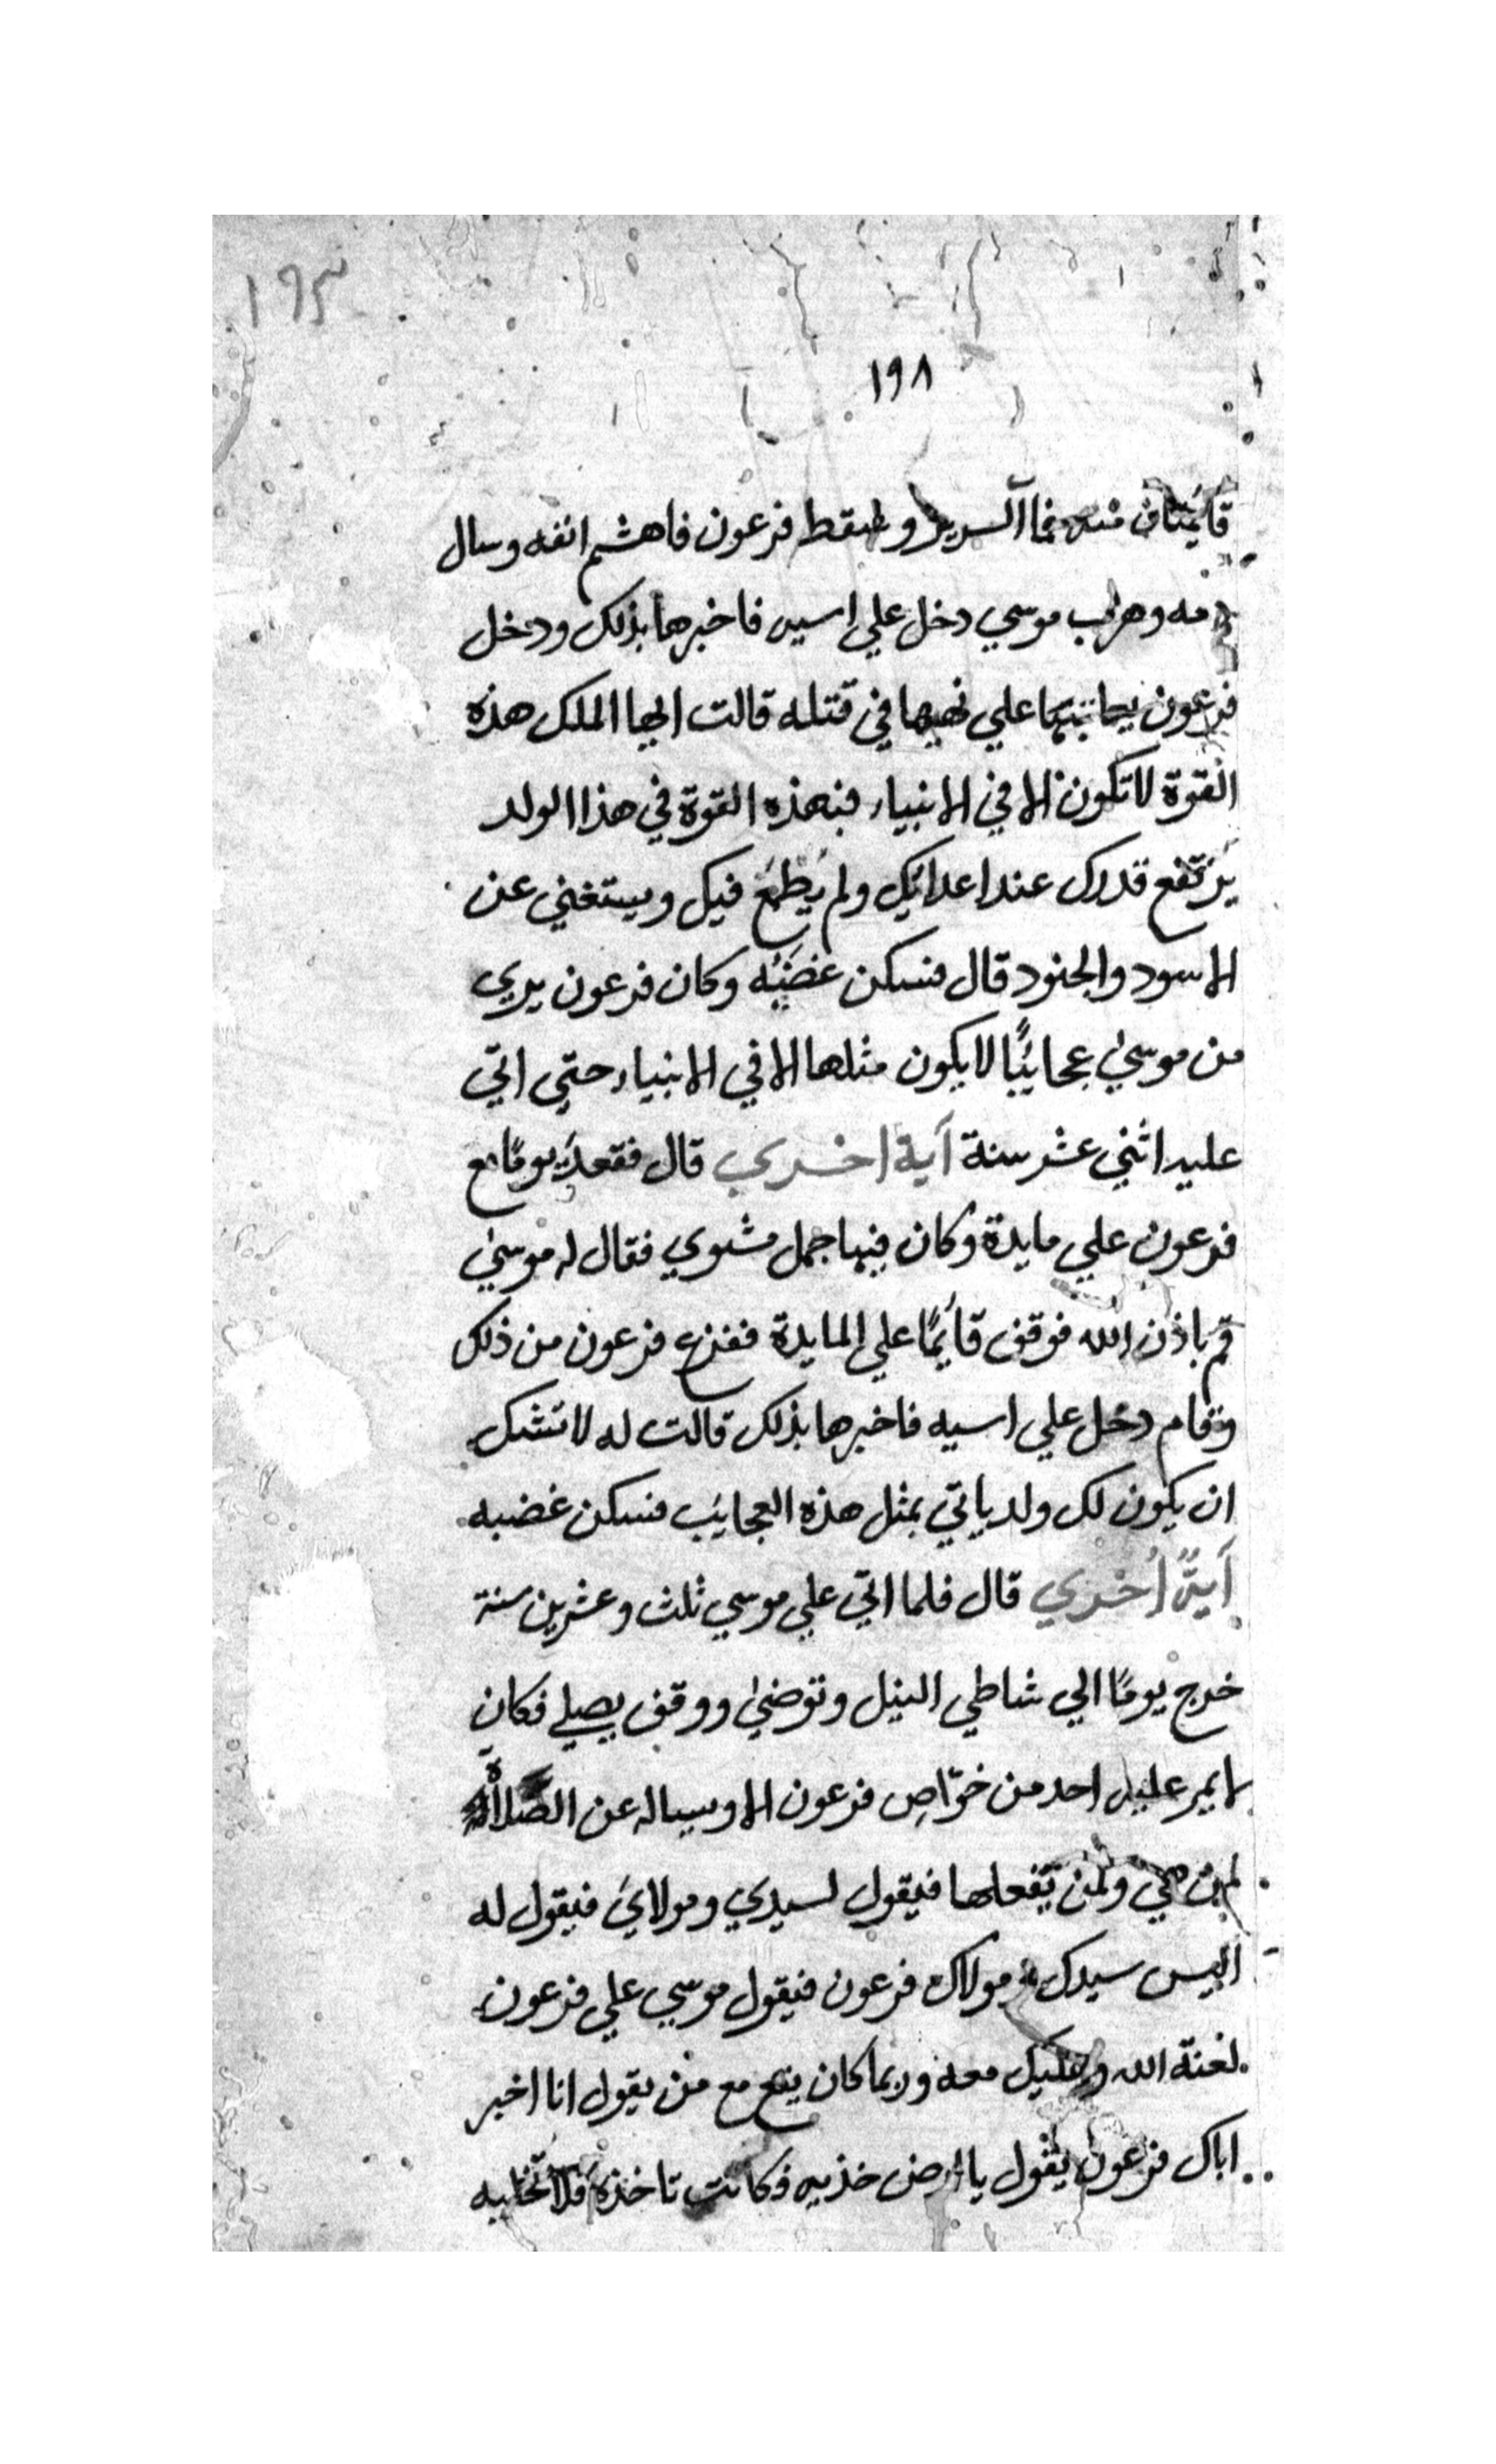 ١٩٣
١٩٨
السرير وسقط فرعون فاهشم انفه وسال
دمه وهرب موسي دخل علي اسيه فاخبرها بذلك ودخل
فرعون يعاتبها علي نهيها في قتله قالت ايها الملك هذه
القوة لا تكون الا في الانبياء فبهذه القوة في هذا الولد
يَرتفع قدرك عند اعدائك ولم يَطمَع فيك ويستغني عن
الاسود والجنود قال فسكن غضبُه وكان فرعون يري
من موسيٰ عجائبًا لا يكون مثلها الا في الانبياء حتي اتي
عليه اثني عشر سنة آية اخري قال فقعد يومًا مع
فرعون علي مايدة وكان فيها جمل مشوي فقال له موسيٰ
قم باذن الله فوقف قائمًا علي المايدة ففزع فرعون من ذلك
وقام دخل علي اسيه فاخبرها بذلك قالت له لا تشك
ان يكون لك ولد ياتي بمثل هذه العجائب فسكن غضبه
آيةً اُخري قال فلما اتي علي موسي ثلث وعشرين سنة
خرج يومًا الي شاطي النيل وتوضيٰ ووقف يصلي فكان
لا يمر عليه احد من خوّاص فرعون الا ويساله عن الصلاة
لمن هي ولمن تفعلها فيقول لسيدي ومولايَ فيقول له
اليس سيدك ومولاك فرعون فيقول موسي علي فرعون
لعنة الله وعليك معه وربما كان يقع مع من يقول انا اخبر
اباك فرعون يقول يا ارض خذيه فكانت تاخذه فلا تخليه